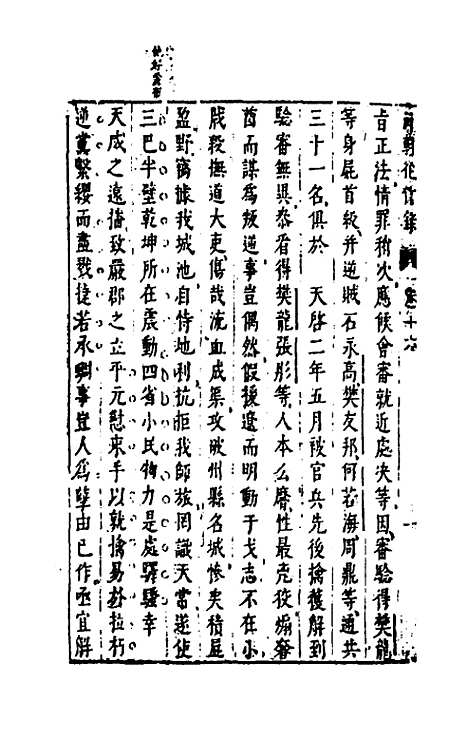 兩朝從信錄 卷十六
旨正法情罪稍次應候會審就近處決等因審驗得樊龍
等身屍首級并逆賊石永高樊友邦何若海周鼎等通共
三十一名俱於 天啓二年五月被官兵先後擒獲解到
驗審無異叅看得樊龍張彤等人本么麽性最兇狡煽奢
酋而謀爲叛逆事豈偶然假援遼而明動于戈志不在小
戕殺撫道大吏傷哉流血成渠攻破州縣名城慘矣積屍
盈野竊據我城池自恃地利抗拒我師旅罔識天常遂使
三巴半壁乾坤所在震動四省小民物力是處驛騷幸
天成之遠播致嚴郡之立平元憝束手以就擒易於拉朽
逆黨繫纓而盡戮捷若承蜩事豈人爲孽由己作亟宜解